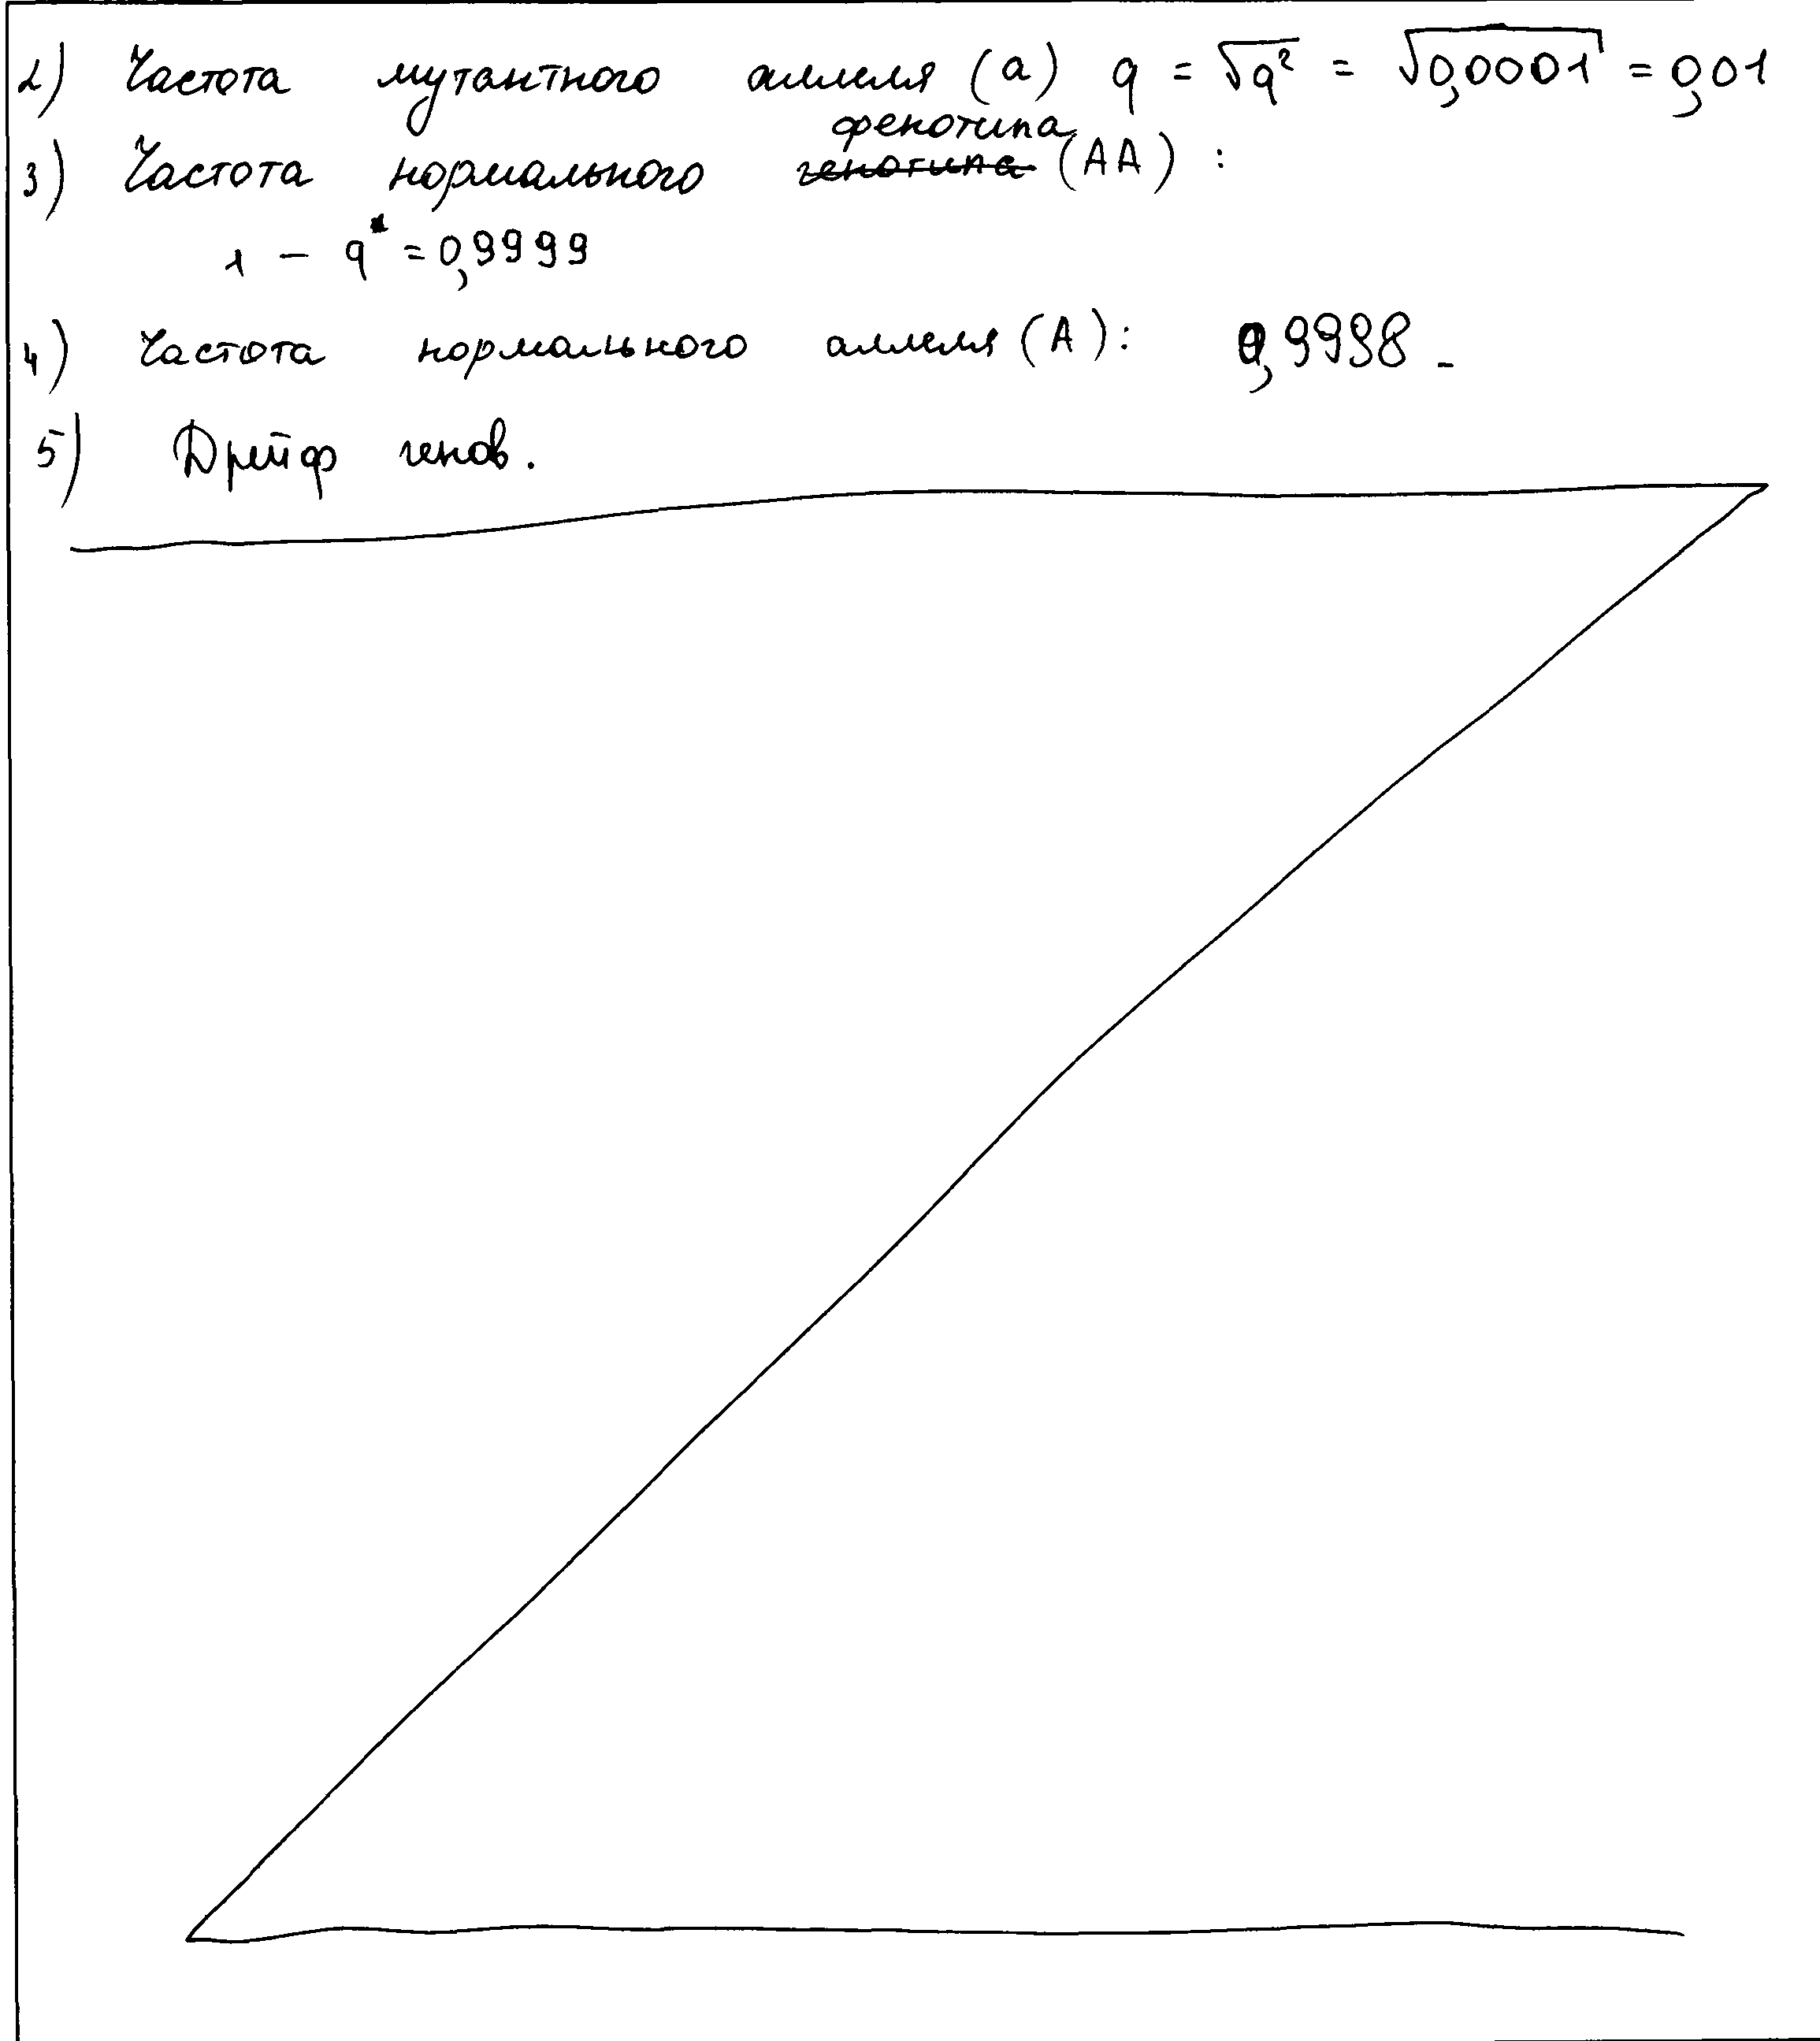 2) Частота мутантного аллеля (а) q = √q² = √0,0001 = 0,01
фенотипа
3) Частота нормального генотипа (АА) :
1 - q = 0,9999
4) Частота нормального аллеля (А): 0,9998 -
5) Дрейф генов.